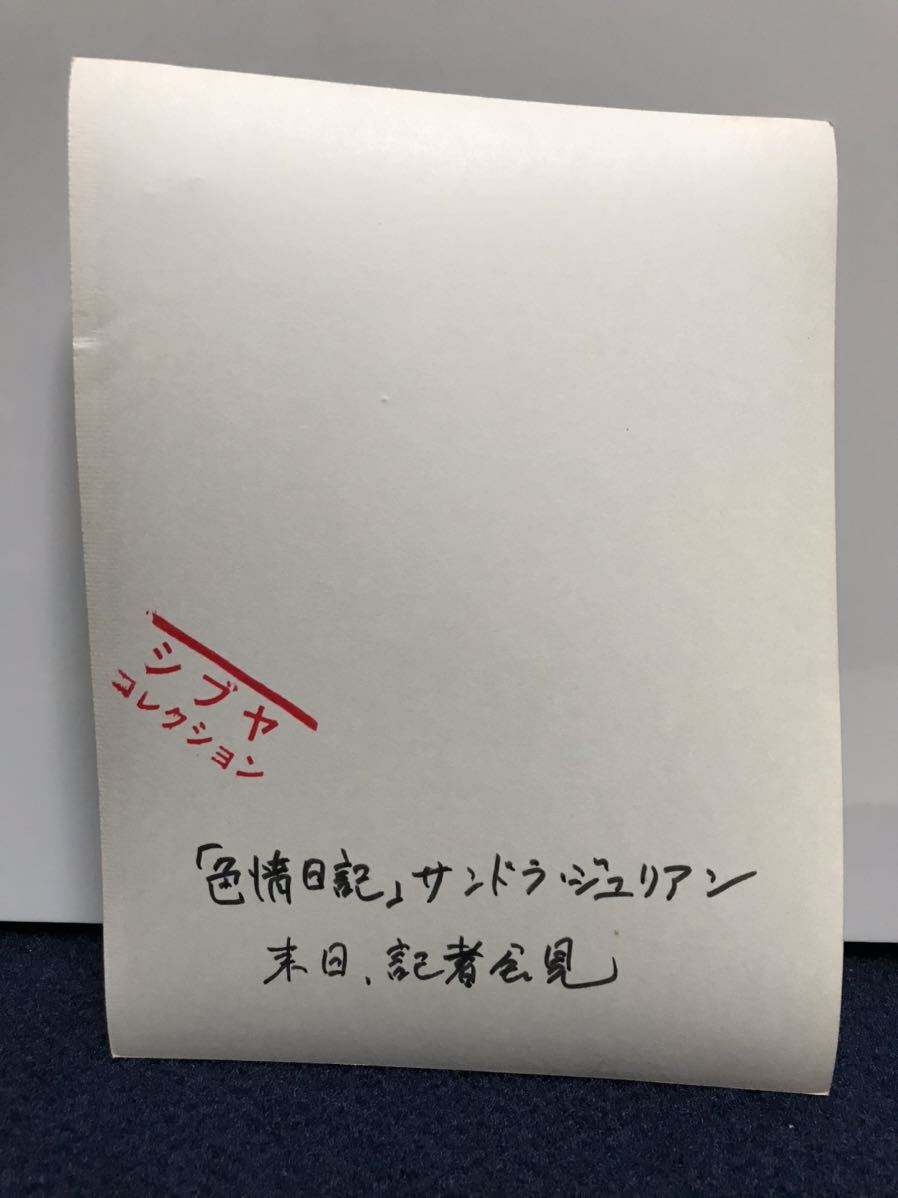 シブヤ
コレクション
「色情日記」サンドラ・ジュリアン
来日、記者会見